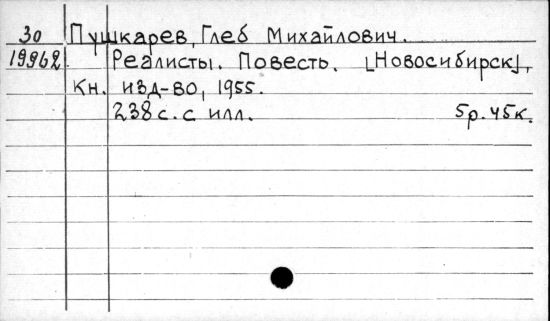 30 Пушкарев, Глеб Михайлович.
19962 Реалисты. Повесть. [Новосибирск],
Кн. изд-во, 1955.
238 с. с илл. 5р. 45к.